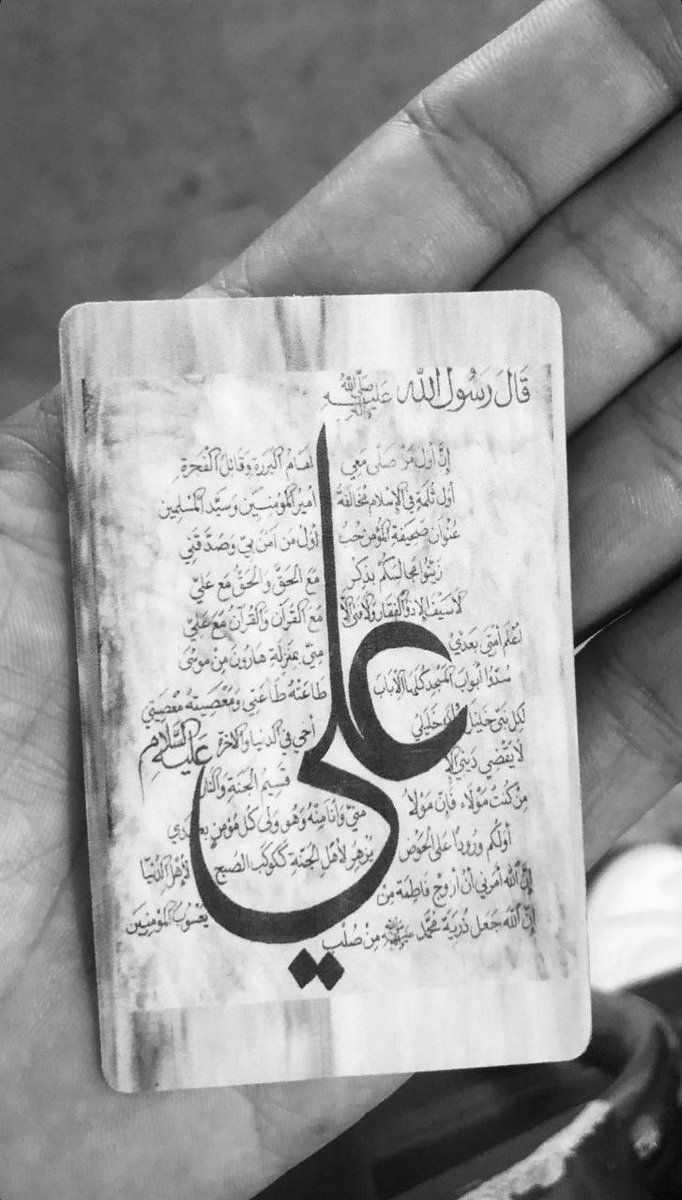 قَالَ رَسُولُ اللَّه صَلَّى اللَّهُ عَلَيْهِ وَآلِهِ
إنّ أول من صلى معي إمام البررة وقاتل الفجرة
أول ثلمة في الإسلام مخالفة أمير المؤمنين وسيد المسلمين
عنوان صحيفة المؤمن حب أول من آمن بي وصدقني
زينوا مجالسكم بذكر مع الحق والحق مع علي
لا سيف إلا ذو الفقار ولا فتى إلا مع القرآن والقرآن مع علي
أعلم أمتي بعدي مني بمنزلة هارون من موسى
سدوا أبواب المسجد كلها إلا باب طاعته طاعتي ومعصيته معصيتي
لكل نبي خليل وإن خليلي أخي في الدنيا والآخرة
عليه السلام
لا يقضي ديني إلا قسيم الجنة والنار
من كنت مولاه فإن مولاه مني وأنا منه وهو ولي كل مؤمن بعدي
أولكم ورودا على الحوض يزهر لأهل الجنة ككوكب الصبح لأهل الدنيا
إن الله أمرني أن أزوج فاطمة من يعسوب المؤمنين
إن الله جعل ذرية محمد ﷺ من صلب
علي